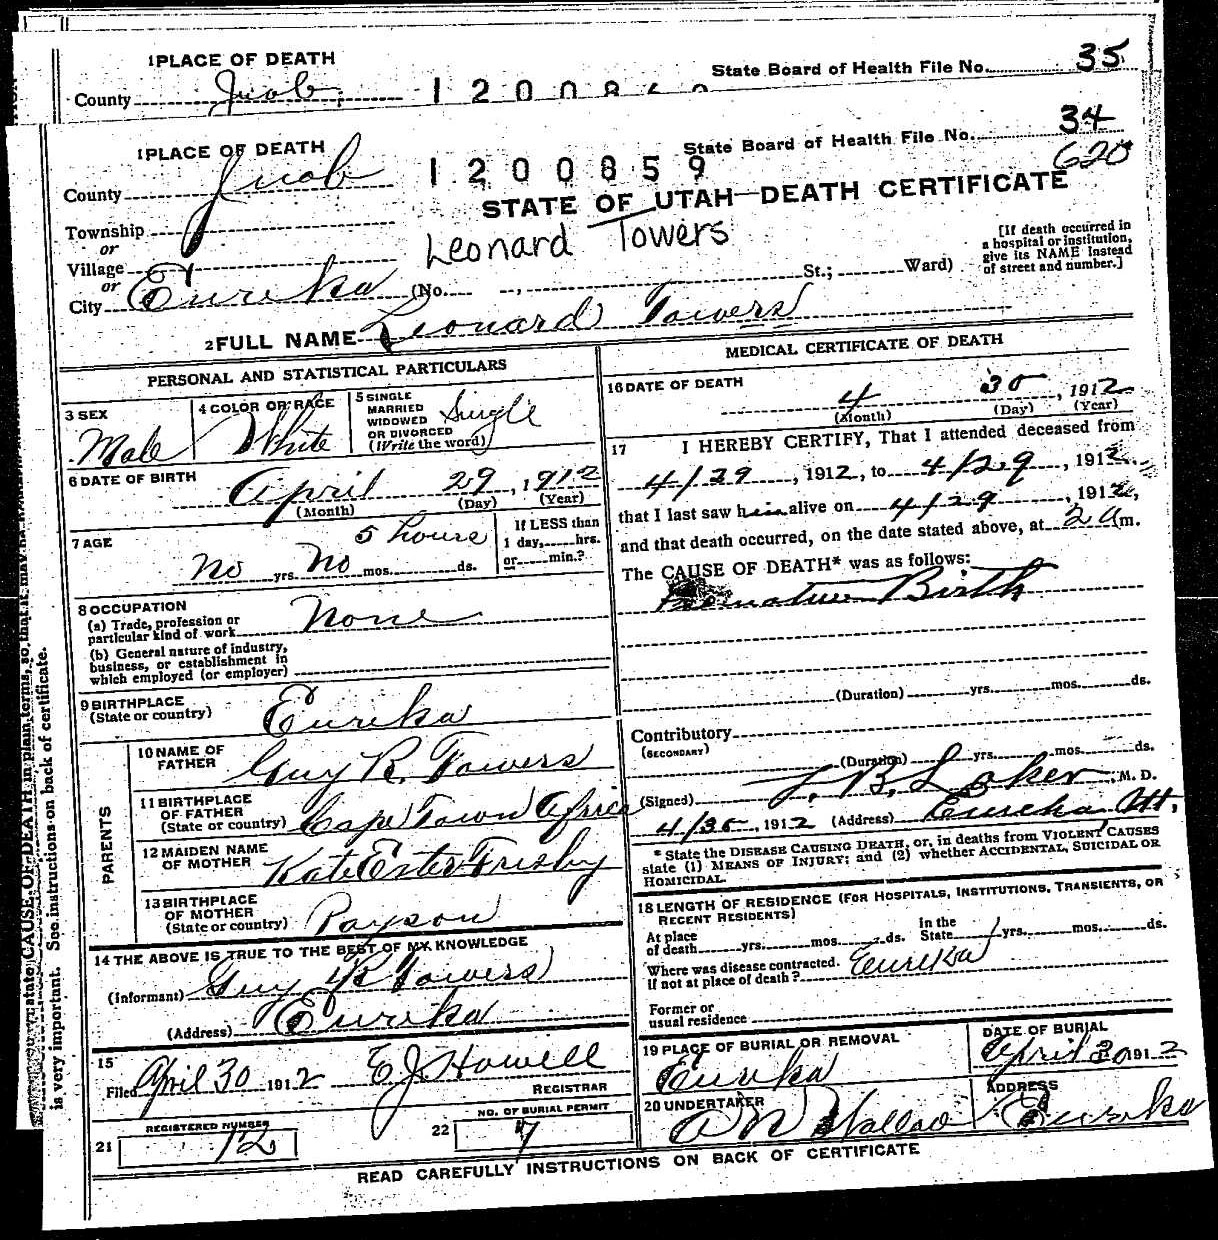 1 PLACE OF DEATH
State Board of Health File No. 35
County Juab
1 PLACE OF DEATH
State Board of Health File No. 34
620
County Juab
1200859
STATE OF UTAH—DEATH CERTIFICATE
Township
or
Village
or
City Eureka (No. St.; Ward)
Leonard Towers
[If death occurred in
a hospital or institution,
give its NAME instead
of street and number.]
2 FULL NAME Leonard Towers
PERSONAL AND STATISTICAL PARTICULARS
3 SEX
Male
4 COLOR OR RACE
White
5 SINGLE
MARRIED
WIDOWED
OR DIVORCED
(Write the word)
Single
6 DATE OF BIRTH
April 29, 1912
(Month) (Day) (Year)
7 AGE
5 hours
No yrs. No mos. ds.
If LESS than
1 day, hrs.
or min.?
8 OCCUPATION
(a) Trade, profession or
particular kind of work
None
(b) General nature of industry,
business, or establishment in
which employed (or employer)
9 BIRTHPLACE
(State or country)
Eureka
PARENTS
10 NAME OF
FATHER
Guy R. Towers
11 BIRTHPLACE
OF FATHER
(State or country)
Cape Town Africa
12 MAIDEN NAME
OF MOTHER
Kate Ester Frisby
13 BIRTHPLACE
OF MOTHER
(State or country)
Payson
14 THE ABOVE IS TRUE TO THE BEST OF MY KNOWLEDGE
(Informant) Guy R Towers
(Address) Eureka
15
Filed April 30 1912 E J Howell
REGISTRAR
21 REGISTERED NUMBER
12
22 NO. OF BURIAL PERMIT
7
MEDICAL CERTIFICATE OF DEATH
16 DATE OF DEATH
4 30, 1912
(Month) (Day) (Year)
17 I HEREBY CERTIFY, That I attended deceased from
4/29, 1912, to 4/29, 1912,
that I last saw him alive on 4/29, 1912,
and that death occurred, on the date stated above, at 2 a m.
The CAUSE OF DEATH* was as follows:
Premature Birth
(Duration) yrs. mos. ds.
Contributory
(SECONDARY)
(Duration) yrs. mos. ds.
(Signed) M. D.
4/30, 1912 (Address) Eureka Ut.
* State the DISEASE CAUSING DEATH, or, in deaths from VIOLENT CAUSES
state (1) MEANS OF INJURY; and (2) whether ACCIDENTAL, SUICIDAL OR
HOMICIDAL.
18 LENGTH OF RESIDENCE (FOR HOSPITALS, INSTITUTIONS, TRANSIENTS, OR
RECENT RESIDENTS)
At place
of death yrs. mos. ds.
In the
State yrs. mos. ds.
Where was disease contracted.
if not at place of death? Eureka
Former or
usual residence
19 PLACE OF BURIAL OR REMOVAL
Eureka
DATE OF BURIAL
April 30 1912
20 UNDERTAKER
ADDRESS
Eureka
READ CAREFULLY INSTRUCTIONS ON BACK OF CERTIFICATE
state CAUSE OF DEATH in plain terms, so that it may
is very important. See instructions on back of certificate.